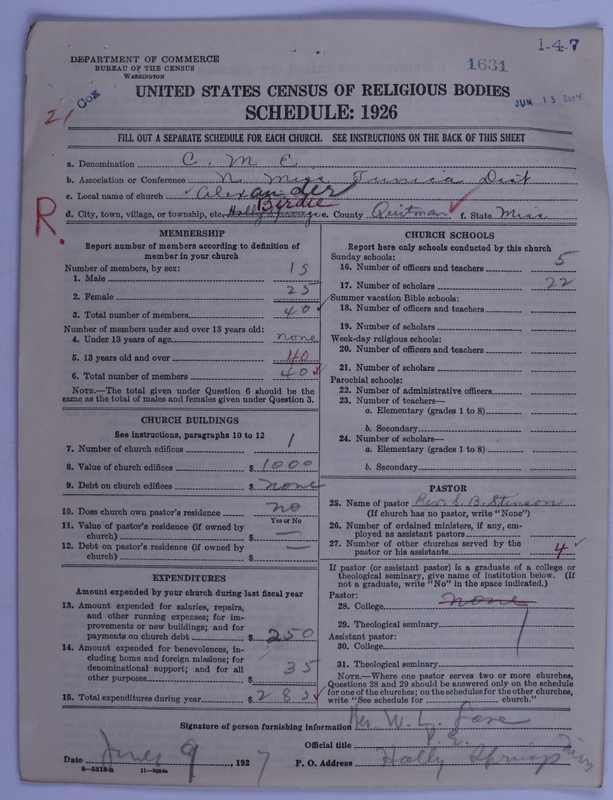 1-4-7
DEPARTMENT OF COMMERCE
BUREAU OF THE CENSUS
WASHINGTON
1631
UNITED STATES CENSUS OF RELIGIOUS BODIES
JUN 13
SCHEDULE: 1926
21
FILL OUT A SEPARATE SCHEDULE FOR EACH CHURCH. SEE INSTRUCTIONS ON THE BACK OF THIS SHEET
a. Denomination C. M E
b. Association or Conference N. Miss Tunica Dist
c. Local name of church Alexander
R.
Birdie
d. City, town, village, or township, etc. Holly Springs e. County Quitman f. State Miss
MEMBERSHIP
Report number of members according to definition of
member in your church
Number of members, by sex:
1. Male 15
2. Female 25
3. Total number of members 40
Number of members under and over 13 years old:
4. Under 13 years of age none
5. 13 years old and over 40
6. Total number of members 40
NOTE.—The total given under Question 6 should be
the same as the total of males and females given under Question 3.
CHURCH BUILDINGS
See instructions, paragraphs 10 to 12
7. Number of church edifices 1
8. Value of church edifices $ 1000
9. Debt on church edifices $ none
10. Does church own pastor's residence no
Yes or No
11. Value of pastor's residence (if owned by
church) $ —
12. Debt on pastor's residence (if owned by
church) $ —
EXPENDITURES
Amount expended by your church during last fiscal year
13. Amount expended for salaries, repairs,
and other running expenses; for im-
provements or new buildings; and for
payments on church debt $ 250
14. Amount expended for benevolences, in-
cluding home and foreign missions; for
denominational support; and for all
other purposes $ 35
15. Total expenditures during year $ 285
CHURCH SCHOOLS
Report here only schools conducted by this church
Sunday schools:
16. Number of officers and teachers 5
17. Number of scholars 22
Summer vacation Bible schools:
18. Number of officers and teachers
19. Number of scholars
Week-day religious schools:
20. Number of officers and teachers
21. Number of scholars
Parochial schools:
22. Number of administrative officers
23. Number of teachers—
a. Elementary (grades 1 to 8)
b. Secondary
24. Number of scholars—
a. Elementary (grades 1 to 8)
b. Secondary
PASTOR
25. Name of pastor Rev. S. B. Stinson
(If church has no pastor, write "None")
26. Number of ordained ministers, if any, em-
ployed as assistant pastors
27. Number of other churches served by the
pastor or his assistants 4
If pastor (or assistant pastor) is a graduate of a college or
theological seminary, give name of institution below. (If
not a graduate, write "No" in the space indicated.)
Pastor:
28. College none
29. Theological seminary
Assistant pastor:
30. College
31. Theological seminary
NOTE.—Where one pastor serves two or more churches,
Questions 28 and 29 should be answered only on the schedule
for one of the churches; on the schedules for the other churches,
write "See schedule for church."
Signature of person furnishing information Rev. W. L.
Official title P. E.
Date June 9, 1927 P. O. Address Holly Springs Miss
8—5518a 11—9664a